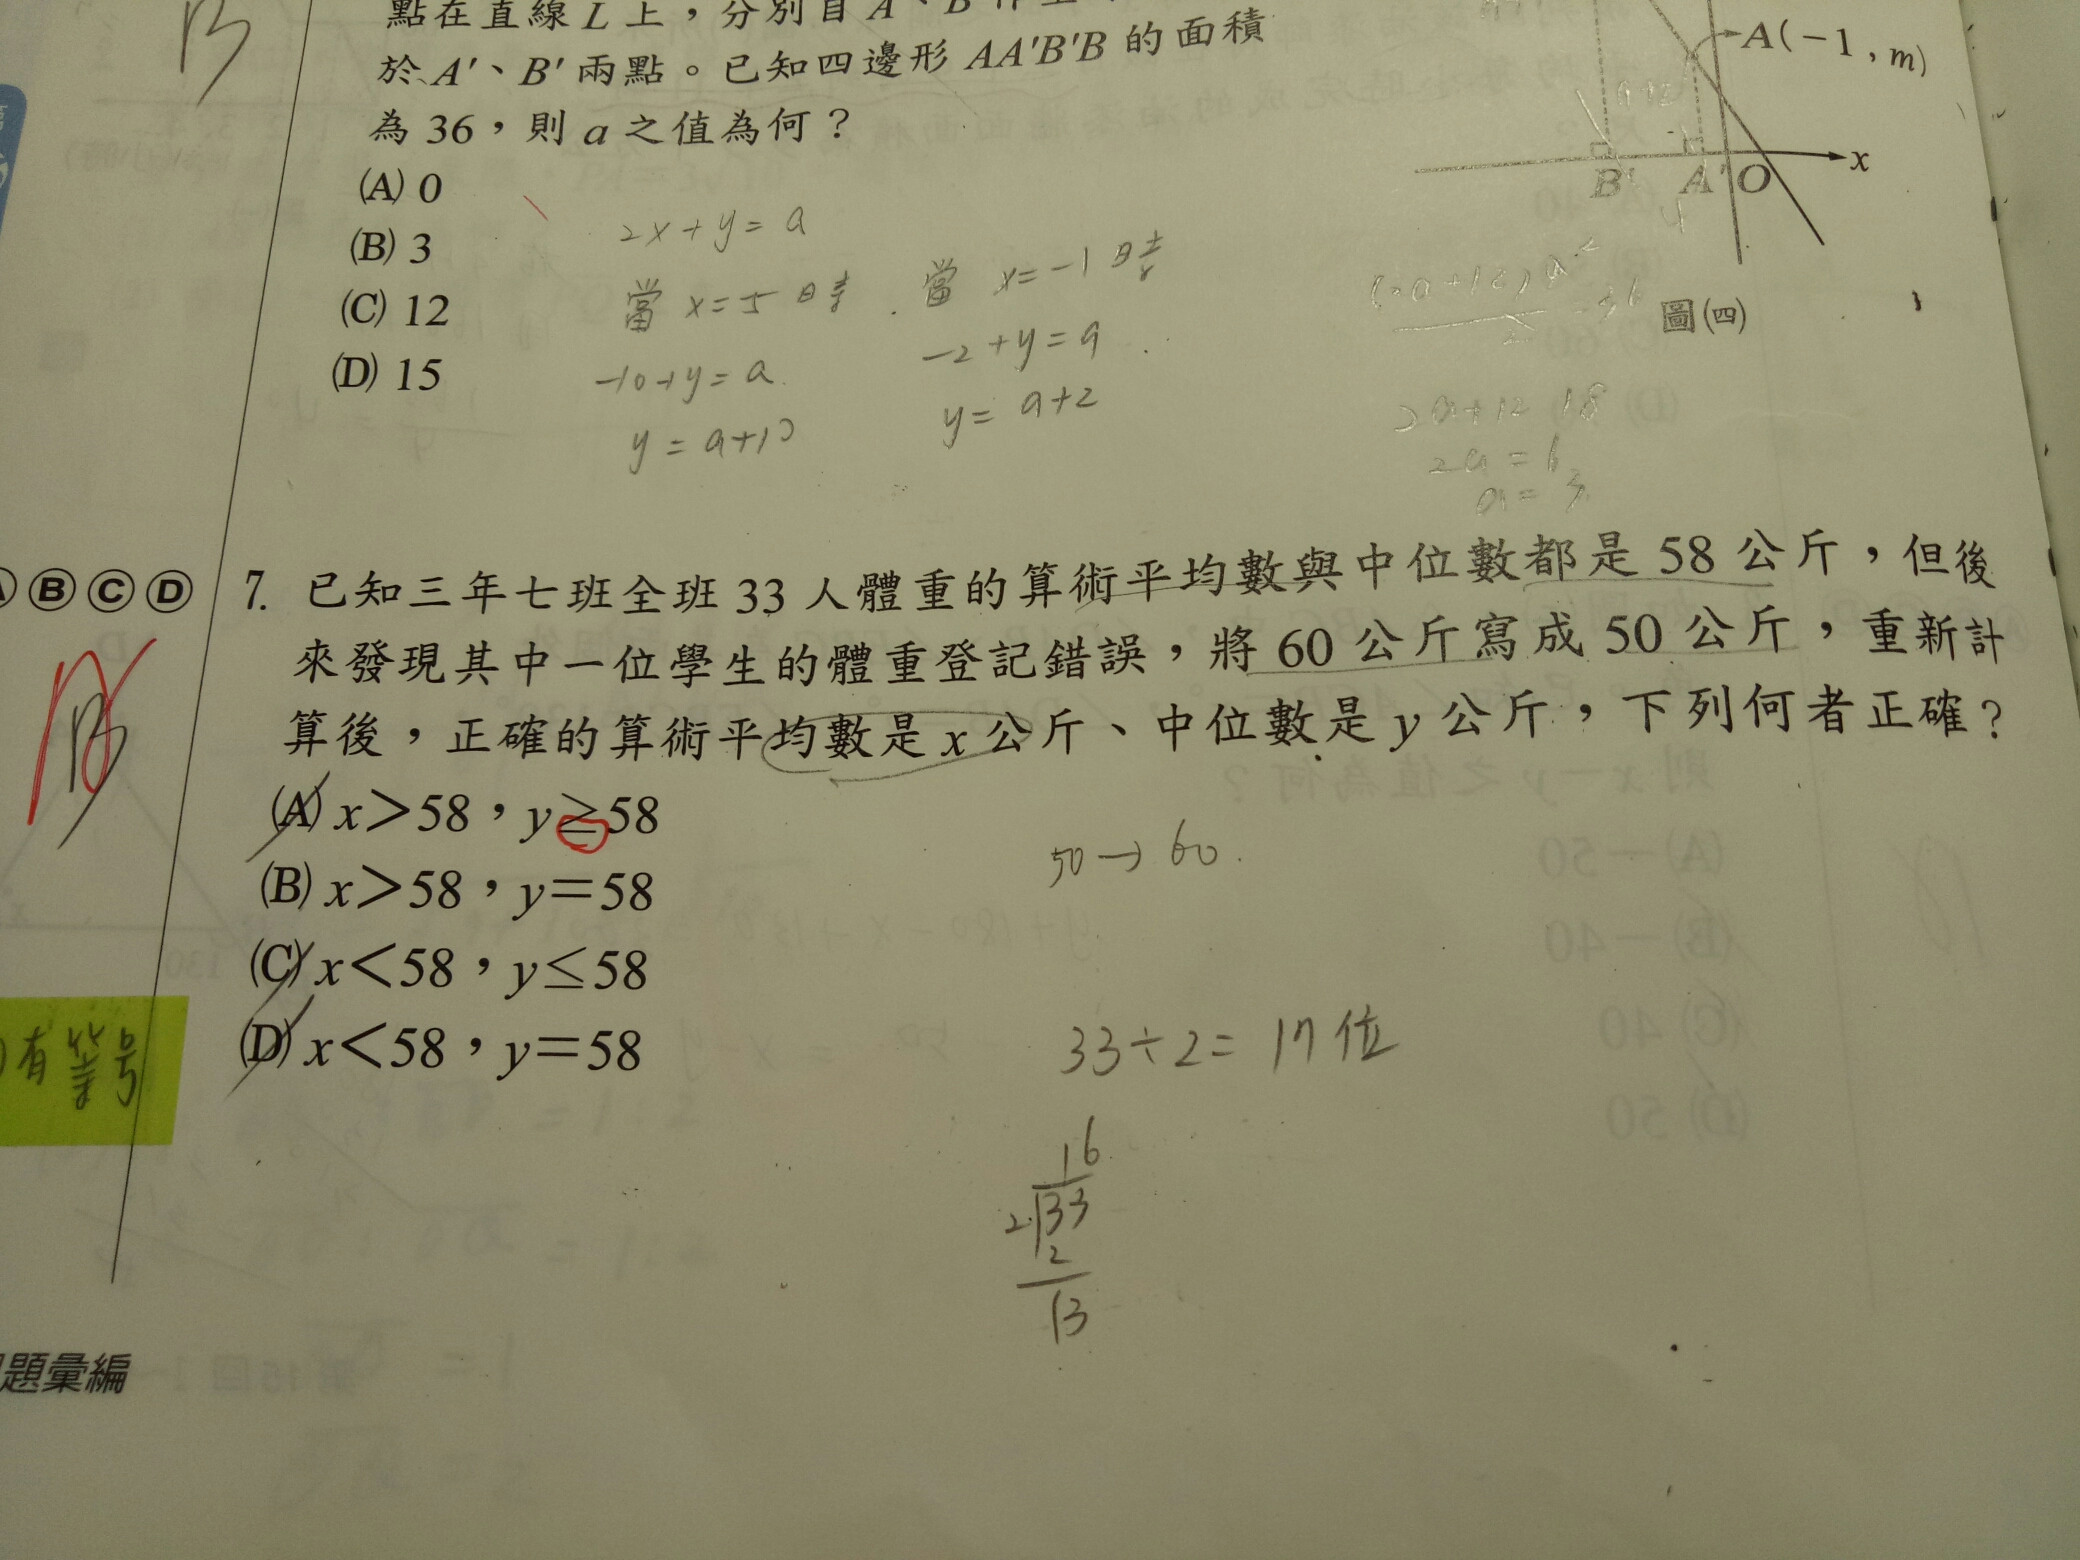 點在直線 L 上，分別自 A、B 作
於 A′、B′ 兩點。已知四邊形 AA′B′B 的面積
為 36，則 a 之值為何？
(A) 0
(B) 3
(C) 12
(D) 15
A(−1 , m)
x
B′ A′ O
圖(四)
2x+y=a
當 x=-5 時
-10+y=a
y=a+10
當 x=-1 時
-2+y=a
y=a+2
2a+12 18
2a=6
a=3
ⒷⒸⒹ 7. 已知三年七班全班 33 人體重的算術平均數與中位數都是 58 公斤，但後
來發現其中一位學生的體重登記錯誤，將 60 公斤寫成 50 公斤，重新計
算後，正確的算術平均數是 x 公斤、中位數是 y 公斤，下列何者正確？
(A) x＞58，y≥58
(B) x＞58，y＝58
(C) x＜58，y≤58
(D) x＜58，y＝58
B
B
50→60.
33÷2= 17位
16
2 33
2
13
有等号
題彙編